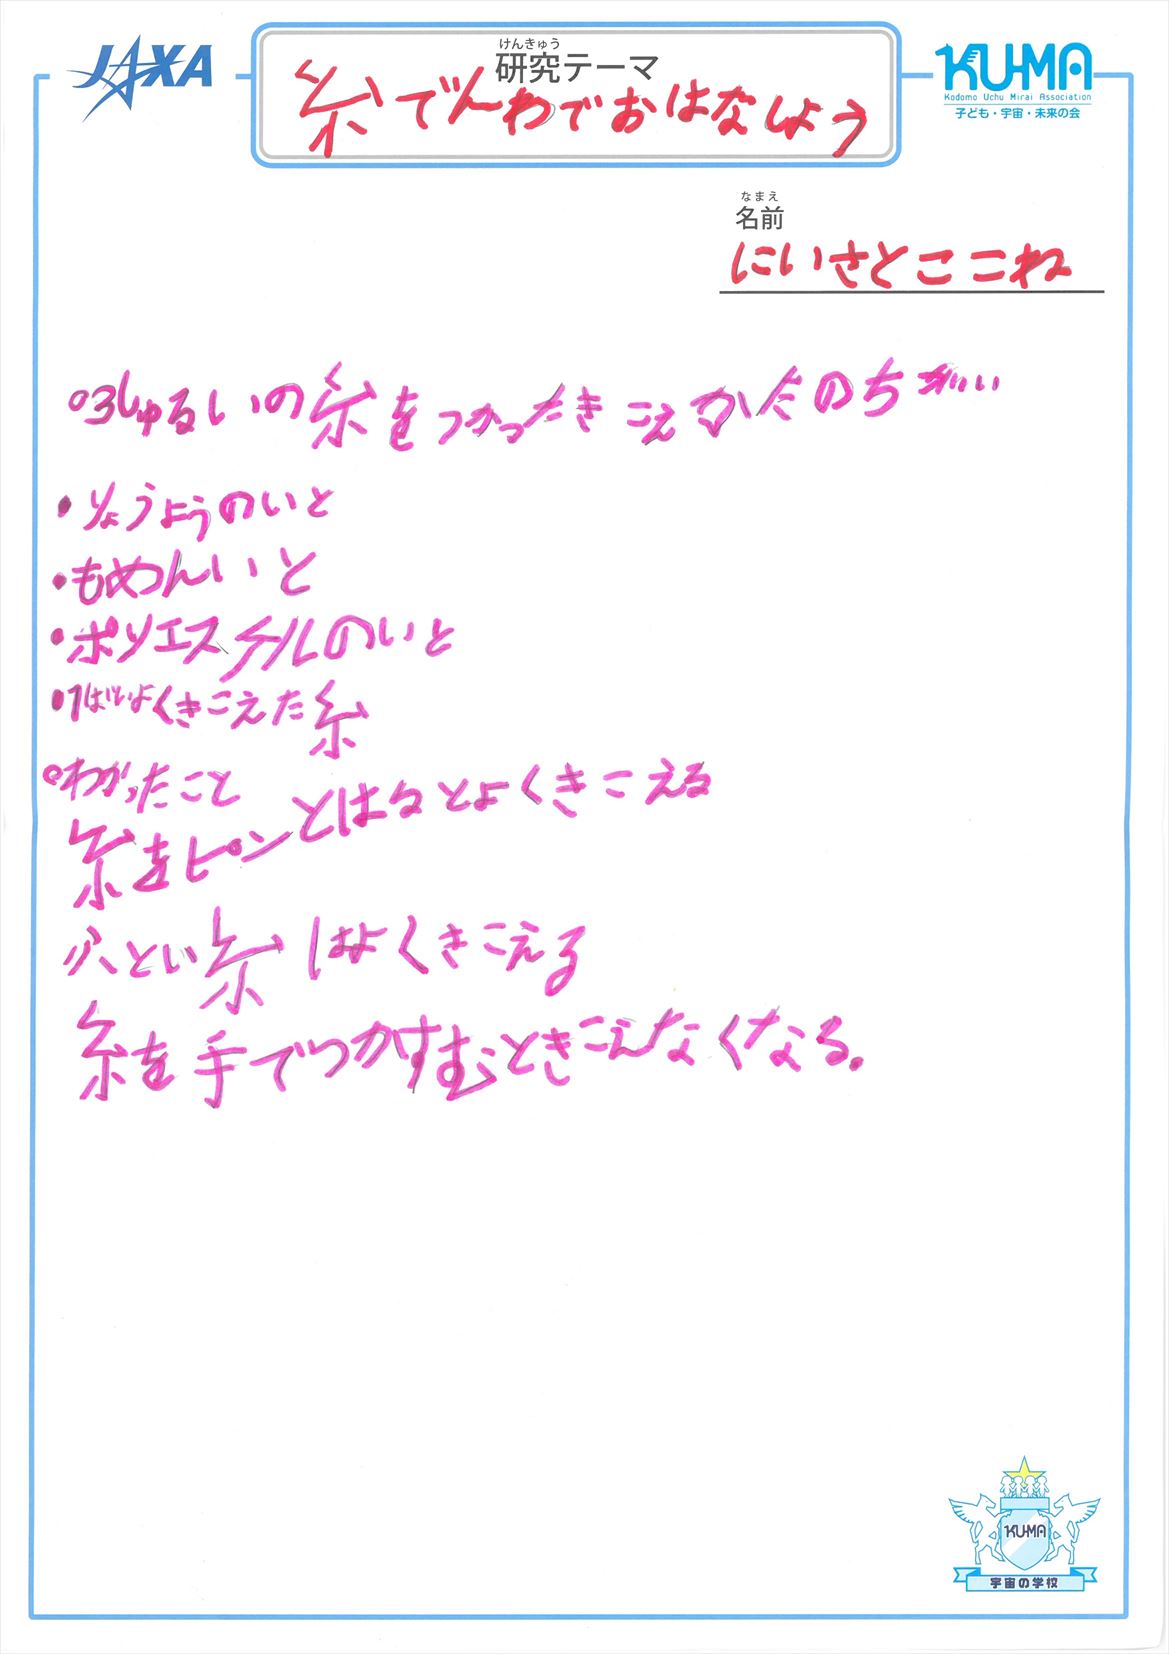 JAXA
けんきゅう
研究テーマ
糸でんわでおはなしよう
KU-MA
Kodomo Uchu Mirai Association
子ども・宇宙・未来の会
なまえ
名前
にいさとここね
○3しゅるいの糸をつかったきこえかたのちがい
・りょうようのいと
・もめんいと
・ポリエステルのいと
・1ばんよくきこえた糸
○わかったこと
糸をピンとはるとよくきこえる
ふとい糸はよくきこえる
糸を手でつかすむときこえなくなる。
KU-MA
宇宙の学校